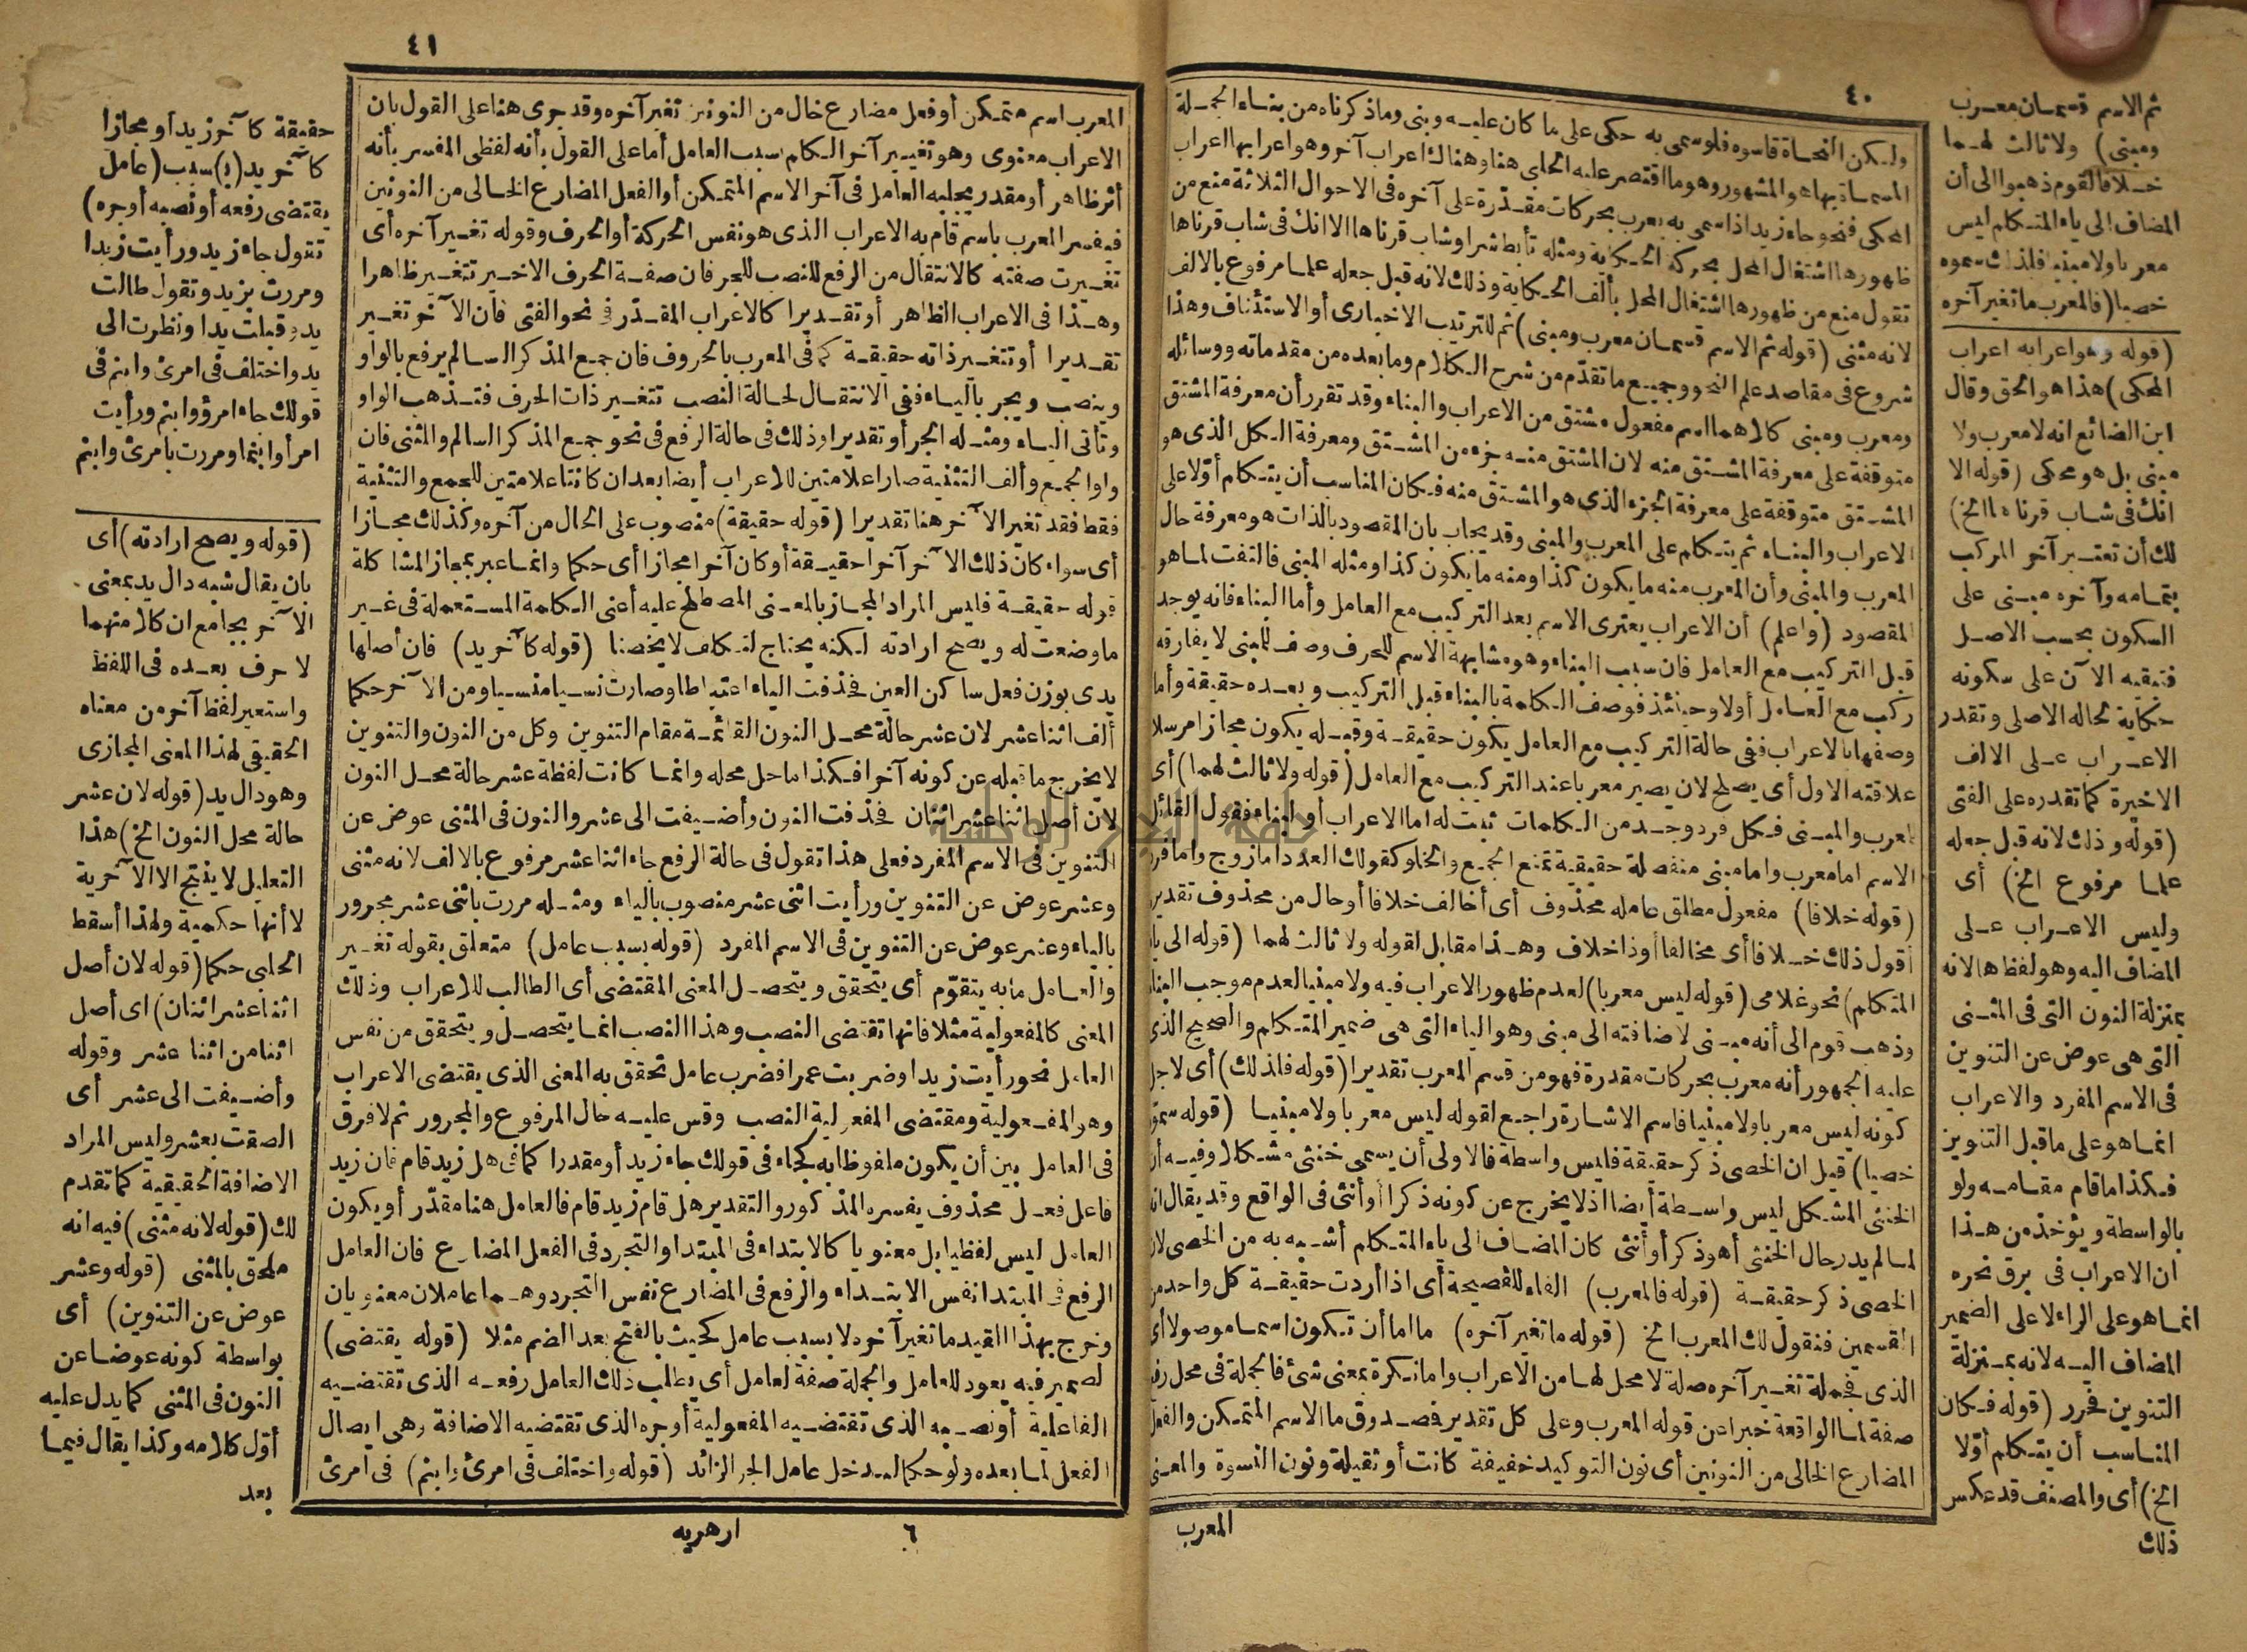 ٤٠
ثم الاسم قسمان معرب
ومبني) ولا ثالث لهما
خلافا لقوم ذهبوا الى أن
المضاف الى ياء المتكلم ليس
معربا ولا مبنيا فلذلك سموه
خصيا (فالمعرب ما تغير آخره
(قوله وهو اعرابه اعراب
المحكى) هذا هو الحق وقال
ابن الضائع انه لا معرب ولا
مبنى بل هو محكى (قوله الا
انك فى شاب قرناها الخ)
لك أن تعتبر آخر المركب
بتمامه وآخره مبنى على
السكون بحسب الاصل
فتبقيه الآن على سكونه
حكاية لحاله الاصلى وتقدر
الاعراب على الالف
الاخيرة كما تقدره على الفتى
(قوله وذلك لانه قبل جعله
علما مرفوع الخ) أى
وليس الاعراب على
المضاف اليه وهو لفظ ها لانه
بمنزلة النون التى فى المثنى
التى هى عوض عن التنوين
فى الاسم المفرد والاعراب
انما هو على ما قبل التنوين
فكذا ما قام مقامه ولو
بالواسطة ويؤخذ من هذا
أن الاعراب فى برق نحره
انما هو على الراء لا على الضمير
المضاف اليه لانه بمنزلة
التنوين فحرر (قوله فكان
المناسب أن يتكلم أولا
الخ) أى والمصنف قد عكس
ذلك
ولكن النحاة قاسوه فلو سمى به حكى على ما كان عليه وبنى وما ذكرناه من بناء الجملة
المسماة بها هو المشهور وهو ما اقتصر عليه الحلبى هنا وهناك اعراب آخر وهو اعرابها اعراب
المحكى فنحو جاء زيد اذا سمى به يعرب بحركات مقدرة على آخره فى الاحوال الثلاثة منع من
ظهورها اشتغال المحل بحركة الحكاية ومثله تأبط شرا وشاب قرناها الا انك فى شاب قرناها
تقول منع من ظهورها اشتغال المحل بألف الحكاية وذلك لانه قبل جعله علما مرفوع بالالف
لانه مثنى (قوله ثم الاسم قسمان معرب ومبنى) ثم للترتيب الاخبارى أو الاستئناف وهذا
شروع فى مقاصد علم النحو وجميع ما تقدم من شرح الكلام وما بعده من مقدماته ووسائله
ومعرب ومبنى كلاهما اسم مفعول مشتق من الاعراب والبناء وقد تقرر أن معرفة المشتق
متوقفة على معرفة المشتق منه لان المشتق منه جزء من المشتق ومعرفة الكل الذى هو
المشتق متوقفة على معرفة الجزء الذى هو المشتق منه فكان المناسب أن يتكلم أولا على
الاعراب والبناء ثم يتكلم على المعرب والمبنى وقد يجاب بان المقصود بالذات هو معرفة حال
المعرب والمبنى وأن المعرب منه ما يكون كذا ومنه ما يكون كذا ومثله المبنى فالتفت لما هو
المقصود (واعلم) أن الاعراب يعترى الاسم بعد التركيب مع العامل وأما البناء فانه يوجد
قبل التركيب مع العامل فان سبب البناء وهو مشابهة الاسم للحرف وصف للمبنى لا يفارقه
ركب مع العامل أولا وحينئذ فوصف الكلمة بالبناء قبل التركيب وبعده حقيقة وأما
وصفها بالاعراب ففى حالة التركيب مع العامل يكون حقيقة وقبله يكون مجازا مرسلا
علاقته الاول أى يصلح لان يصير معربا عند التركيب مع العامل (قوله ولا ثالث لهما) أى
للمعرب والمبنى فكل فرد وجد من الكلمات ثبت له اما الاعراب أو البناء فقول القائل
الاسم اما معرب واما مبنى منفصلة حقيقية تمنع الجمع والخلو كقولك العدد اما زوج واما فرد
(قوله خلافا) مفعول مطلق عامله محذوف أى أخالف خلافا أو حال من محذوف تقديره
أقول ذلك خلافا أى مخالفا أو ذا خلاف وهذا مقابل لقوله ولا ثالث لهما (قوله الى ياء
المتكلم) نحو غلامى (قوله ليس معربا) لعدم ظهور الاعراب فيه ولا مبنيا لعدم موجب البناء
وذهب قوم الى أنه مبنى لاضافته الى مبنى وهو الياء التى هى ضمير المتكلم والصحيح الذى
عليه الجمهور أنه معرب بحركات مقدرة فهو من قسم المعرب تقديرا (قوله فلذلك) أى لاجل
كونه ليس معربا ولا مبنيا فاسم الاشارة راجع لقوله ليس معربا ولا مبنيا (قوله سموه
خصيا) قيل ان الخصى ذكر حقيقة فليس واسطة فالاولى أن يسمى خنثى مشكلا وفيه أن
الخنثى المشكل ليس واسطة أيضا اذ لا يخرج عن كونه ذكرا أو أنثى فى الواقع وقد يقال انه
لما لم يدر حال الخنثى أهو ذكر أو أنثى كان المضاف الى ياء المتكلم أشبه به من الخصى لان
الخصى ذكر حقيقة (قوله فالمعرب) الفاء للفصيحة أى اذا أردت حقيقة كل واحد من
القسمين فنقول لك المعرب الخ (قوله ما تغير آخره) ما اما أن تكون اسما موصولا أى
الذى فجملة تغير آخره صلة لا محل لها من الاعراب واما نكرة بمعنى شئ فالجملة فى محل رفع
صفة لما الواقعة خبرا عن قوله المعرب وعلى كل تقدير فصدوق ما الاسم المتمكن والفعل
المضارع الخالى من النونين أى نون التوكيد خفيفة كانت أو ثقيلة ونون النسوة والمعنى
المعرب
٤١
المعرب اسم متمكن أو فعل مضارع خال من النونين تغير آخره وقد جرى هنا على القول بان
الاعراب معنوى وهو تغيير آخر الكلم بسبب العامل أما على القول بأنه لفظى المفسر بأنه
أثر ظاهر أو مقدر يجلبه العامل فى آخر الاسم المتمكن أو الفعل المضارع الخالى من النونين
فيفسر المعرب باسم قام به الاعراب الذى هو نفس الحركة أو الحرف وقوله تغير آخره أى
تغيرت صفته كالانتقال من الرفع للنصب للجر فان صفة الحرف الاخير تتغير ظاهرا
وهذا فى الاعراب الظاهر أو تقديرا كالاعراب المقدر فى نحو الفتى فان الآخر تغير
تقديرا أو تتغير ذاته حقيقة كما فى المعرب بالحروف فان جمع المذكر السالم يرفع بالواو
وينصب ويجر بالياء ففى الانتقال لحالة النصب تتغير ذات الحرف فتذهب الواو
وتأتى الياء ومثله الجر أو تقديرا وذلك فى حالة الرفع فى نحو جمع المذكر السالم والمثنى فان
واو الجمع وألف التثنية صارا علامتين للاعراب أيضا بعد ان كانتا علامتين للجمع والتثنية
فقط فقد تغير الآخر هنا تقديرا (قوله حقيقة) منصوب على الحال من آخره وكذلك مجازا
أى سواء كان ذلك الآخر آخرا حقيقة أو كان آخرا مجازا أى حكما وانما عبر بمجاز المشاكلة
قوله حقيقة فليس المراد المجاز بالمعنى المصطلح عليه أعنى الكلمة المستعملة فى غير
ما وضعت له ويصح ارادته لكنه يحتاج لتكلف لا يخصنا (قوله كآخر يد) فان أصلها
يدى بوزن فعل ساكن العين فحذفت الياء اعتباطا وصارت نسيا منسيا ومن الآخر حكما
ألف اثنا عشر لان عشر حالة محل النون القائمة مقام التنوين وكل من النون والتنوين
لا يخرج ما قبله عن كونه آخرا فكذا ما حل محله وانما كانت لفظة عشر حالة محل النون
لان أصل اثنا عشر اثنان فحذفت النون وأضيفت الى عشر والنون فى المثنى عوض عن
التنوين فى الاسم المفرد فعلى هذا تقول فى حالة الرفع جاء اثنا عشر مرفوع بالالف لانه مثنى
وعشر عوض عن التنوين ورأيت اثنى عشر منصوب بالياء ومثله مررت باثنى عشر مجرور
بالياء وعشر عوض عن التنوين فى الاسم المفرد (قوله بسبب عامل) متعلق بقوله تغير
والعامل ما به يتقوم أى يتحقق ويتحصل المعنى المقتضى أى الطالب للاعراب وذلك
المعنى كالمفعولية مثلا فانها تقتضى النصب وهذا النصب انما يتحصل ويتحقق من نفس
العامل نحو رأيت زيدا وضربت عمرا فضرب عامل تحقق به المعنى الذى يقتضى الاعراب
وهو المفعولية ومقتضى المفعولية النصب وقس عليه حال المرفوع والمجرور ثم لا فرق
فى العامل بين أن يكون ملفوظا به كجاء فى قولك جاء زيد أو مقدرا كما فى هل زيد قام فان زيد
فاعل فعل محذوف يفسره المذكور والتقدير هل قام زيد قام فالعامل هنا مقدر أو يكون
العامل ليس لفظيا بل معنويا كالابتداء فى المبتدا والتجرد فى الفعل المضارع فان العامل
الرفع فى المبتدا نفس الابتداء والرفع فى المضارع نفس التجرد وهما عاملان معنويان
وخرج بهذا القيد ما تغير آخره لا بسبب عامل كحيث بالفتح بعد الضم مثلا (قوله يقتضى)
لضمير فيه يعود للعامل والجملة صفة لعامل أى يطلب ذلك العامل رفعه الذى تقتضيه
الفاعلية أو نصبه الذى تقتضيه المفعولية أو جره الذى تقتضيه الاضافة وهى ايصال
الفعل لما بعده ولو حكما ليدخل عامل الجر الزائد (قوله واختلف فى امرئ وابنم) فى امرئ
٦
ازهريه
حقيقة كآخر زيد أو مجازا
كآخر يد (ب) سبب (عامل
يقتضى رفعه أو نصبه أو جره)
تقول جاء زيد ورأيت زيدا
ومررت بزيد وتقول طالت
يد وقبلت يدا ونظرت الى
يد واختلف فى امرئ وابنم فى
قولك جاء امرؤ وابنم ورأيت
امرأ وابنما ومررت بامرئ وابنم
(قوله ويصح ارادته) أى
بان يقال شبه دال يد بمعنى
الآخر بجامع ان كلا منهما
لا حرف بعده فى اللفظ
واستعير لفظ آخر من معناه
الحقيقى لهذا المعنى المجازى
وهو دال يد (قوله لان عشر
حالة محل النون الخ) هذا
التعليل لا ينتج الا الآخرية
لا أنها حكمية ولهذا أسقط
الحلبى حكما (قوله لان أصل
اثنا عشر اثنان) اى أصل
اثنا من اثنا عشر وقوله
وأضيفت الى عشر أى
الصقت بعشر وليس المراد
الاضافة الحقيقية كما تقدم
لك (قوله لانه مثنى) فيه انه
ملحق بالمثنى (قوله وعشر
عوض عن التنوين) أى
بواسطة كونه عوضا عن
النون فى المثنى كما يدل عليه
أول كلامه وكذا يقال فيما
بعد